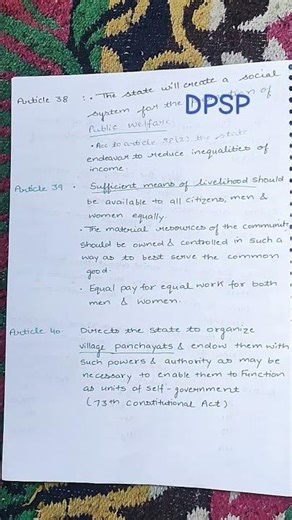 Article 38 : • The state will create a social
system for the of
DPSP
Public welfare.
• Acc to article 38(2) the state
endeavor to reduce inequalities of
income.
Article 39 • Sufficient means of livelihood should
be available to all citizens, men &
women equally.
• The material resources of the community
should be owned & controlled in such a
way as to best serve the common
good.
• Equal pay for equal work for both
men & women.
Article 40 Directs the state to organize
village panchayats & endow them with
such powers & authority as may be
necessary to enable them to Function
as units of self-government
(73th Constitutional Act)